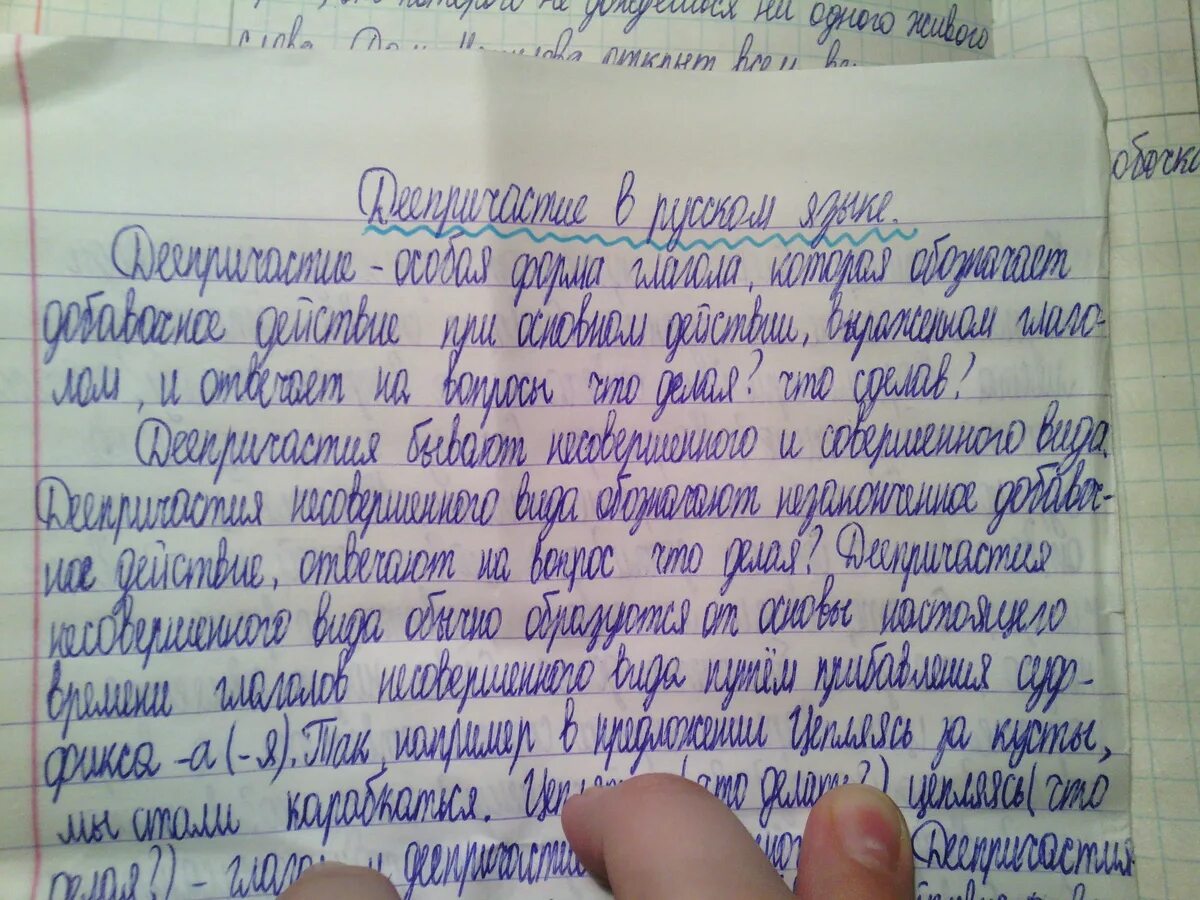 которого не дождёшься ни одного живого
откроет всем
обочка
Деепричастие в русском языке.
Деепричастие - особая форма глагола, которая обозначает
добавочное действие при основном действии, выраженном глаго-
лом, и отвечает на вопросы что делая? что сделав?
Деепричастия бывают несовершенного и совершенного вида.
Деепричастия несовершенного вида обозначают незаконченное добавоч-
ное действие, отвечают на вопрос что делая? Деепричастия
несовершенного вида обычно образуются от основы настоящего
времени глаголов несовершенного вида путём прибавления суф-
фикса -а (-я). Так, например в предложении Цепляясь за кусты,
мы стали карабкаться. (что делать?) цепляясь (что
делая?) - и Деепричастия